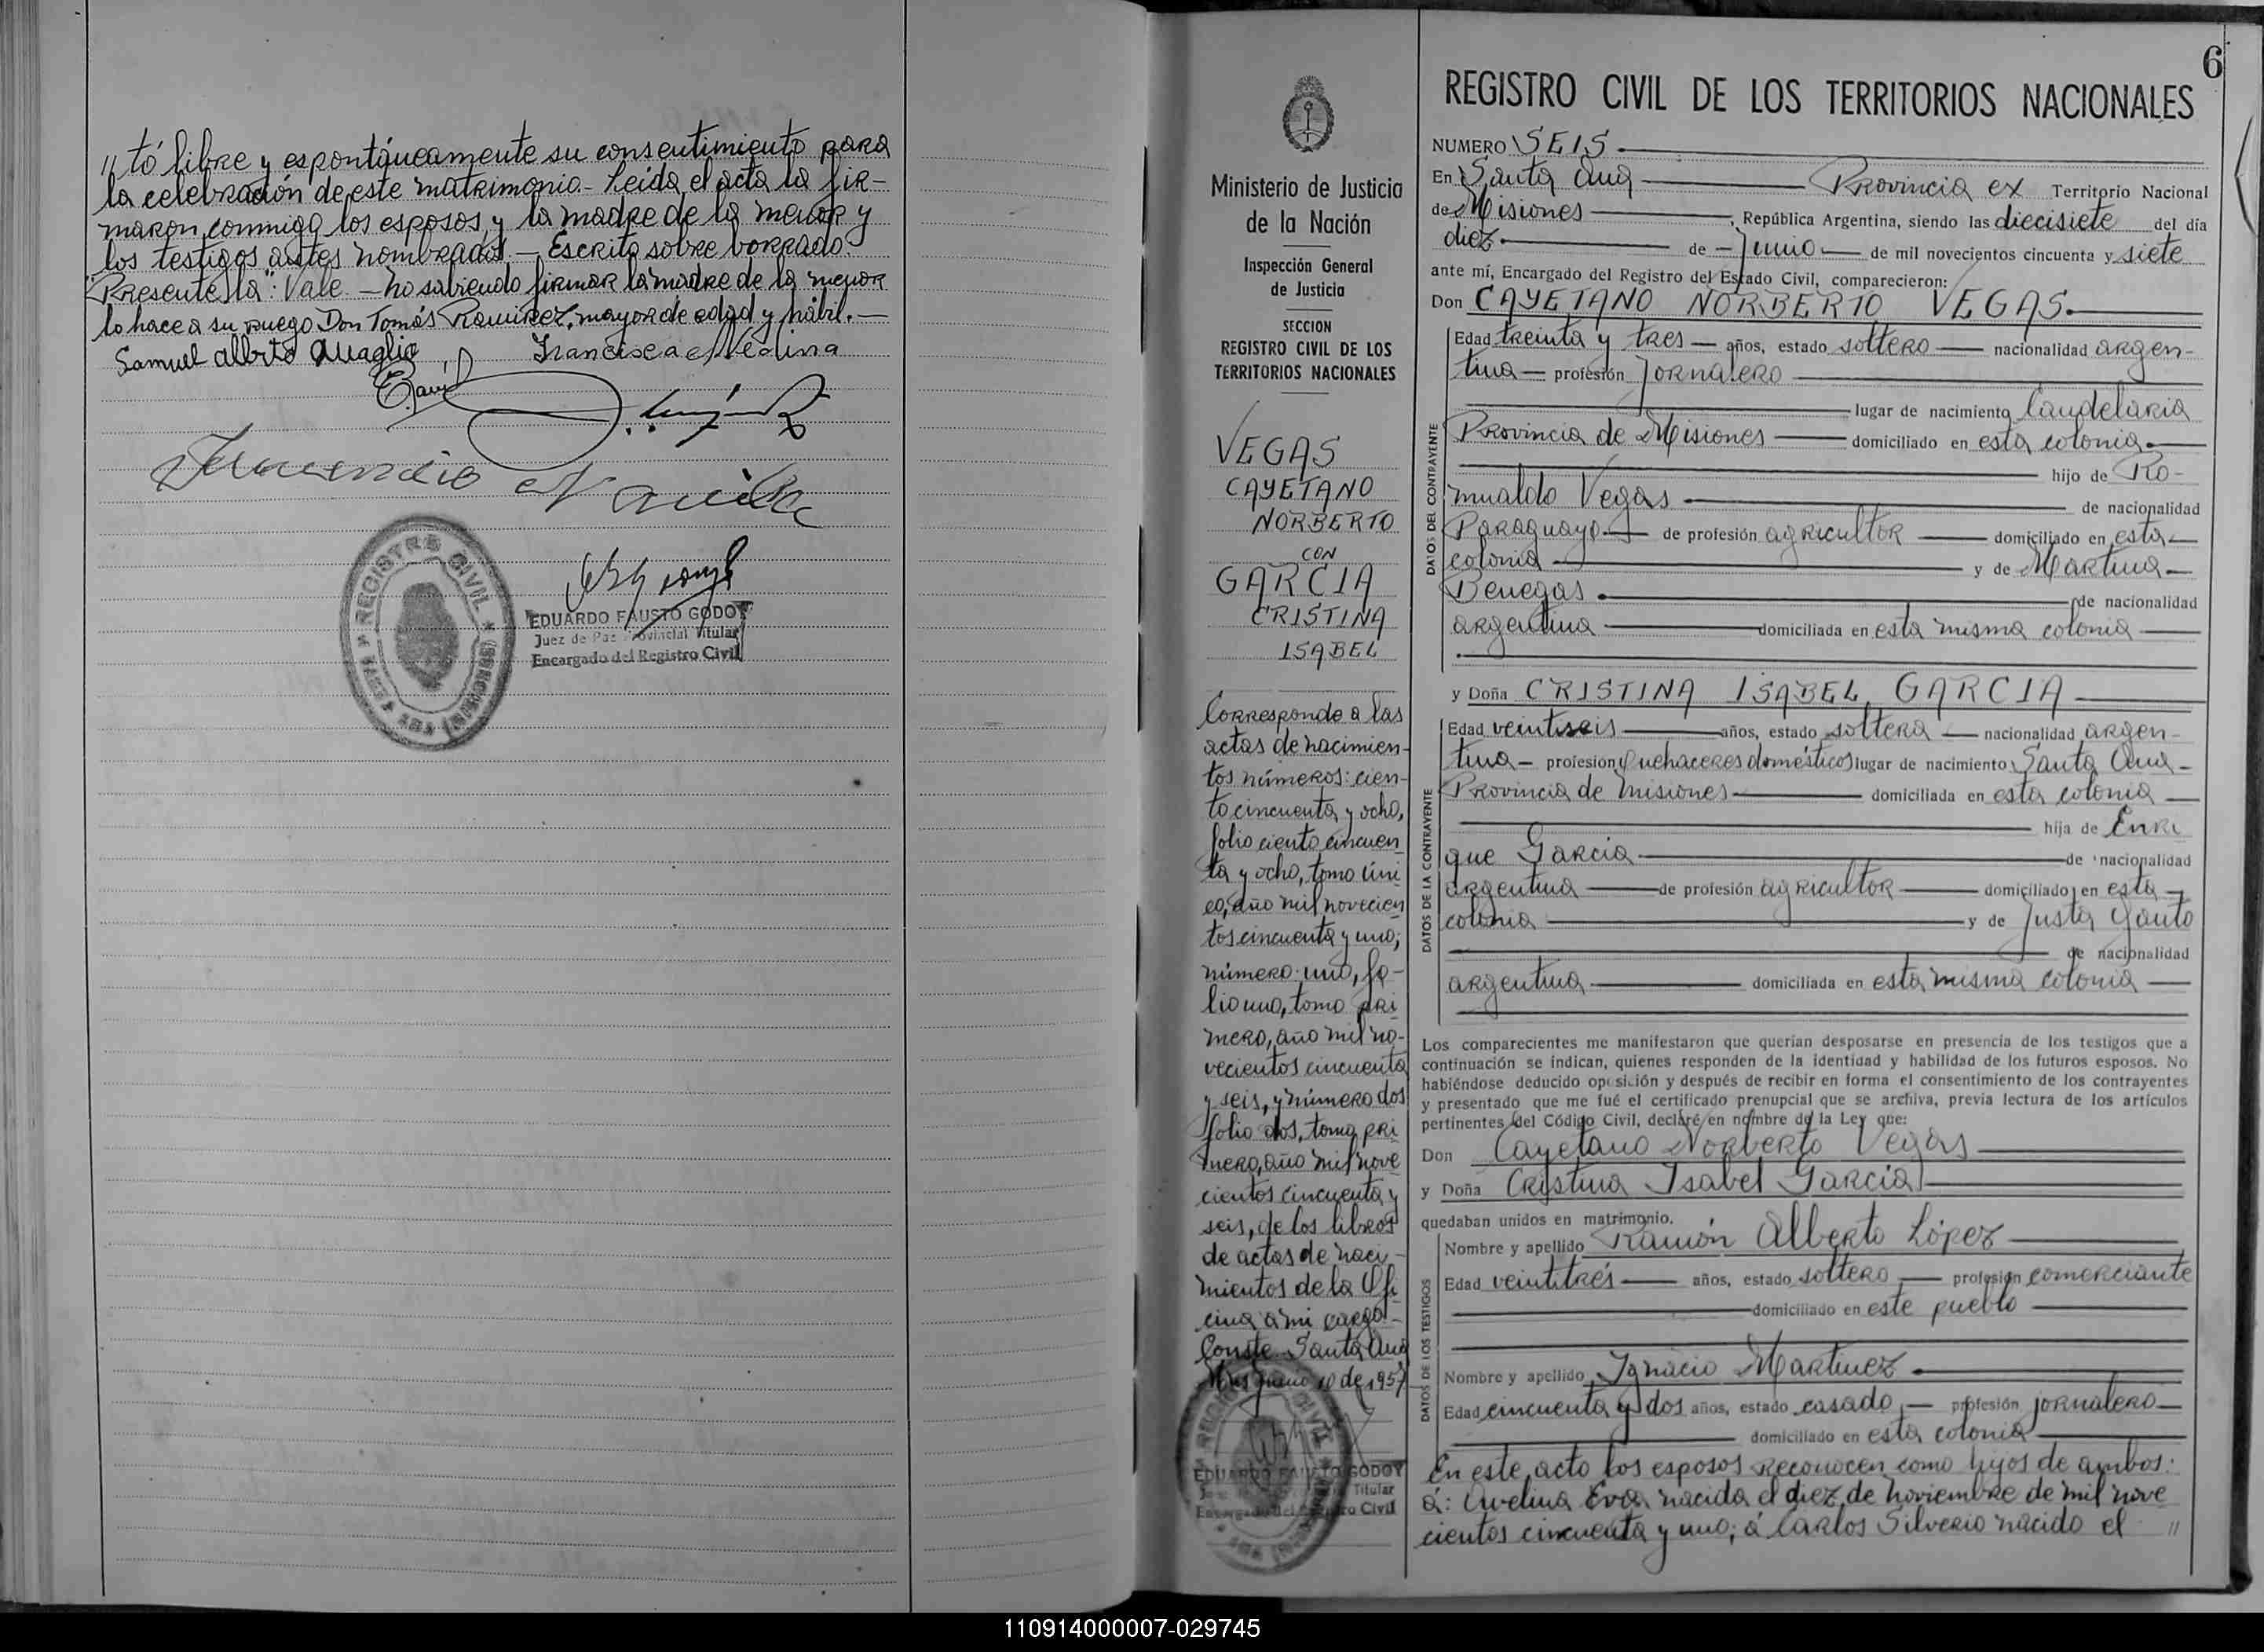 „tó libre y espontáneamente su consentimiento para
la celebración de este matrimonio.- Leída el acta la fir-
maron conmigo los esposos, y la madre de la menor y
los testigos antes nombrados.- Escrito sobre borrado:
"Presente, la": Vale.- No sabiendo firmar la madre de la menor
lo hace a su ruego Don Tomás Ramirez, mayor de edad y hábil.-
Samuel Alberto Quaglio Francisca Medina
REGISTRO CIVIL
EDUARDO FAUSTO GODOY
Juez de Paz Provincial Titular
Encargado del Registro Civil
6
Ministerio de Justicia
de la Nación
Inspección General
de Justicia
SECCION
REGISTRO CIVIL DE LOS
TERRITORIOS NACIONALES
VEGAS
CAYETANO
NORBERTO
CON
GARCIA
CRISTINA
ISABEL
Corresponde a las
actas de nacimien-
tos números: cien-
to cincuenta y ocho,
folio ciento cincuen
ta y ocho, tomo úni
co, año mil novecien
tos cincuenta y uno;
número uno, fo-
lio uno, tomo pri
mero, año mil no-
vecientos cincuenta
y seis, y número dos
folio dos, tomo pri
mero, año mil nove
cientos cincuenta y
seis, de los libros
de actas de naci-
mientos de la Ofi
cina a mi cargo.-
Conste. Santa Ana
Mnes Junio 10 de 1957
EDUARDO FAUSTO GODOY
Titular
Encargado del Registro Civil
REGISTRO CIVIL DE LOS TERRITORIOS NACIONALES
NUMERO SEIS.
En Santa Ana Provincia ex Territorio Nacional
de Misiones, República Argentina, siendo las diecisiete del día
diez de Junio de mil novecientos cincuenta y siete
ante mí, Encargado del Registro del Estado Civil, comparecieron:
Don CAYETANO NORBERTO VEGAS.
DATOS DEL CONTRAYENTE
Edad treinta y tres años, estado soltero nacionalidad argen-
tina profesión jornalero
lugar de nacimiento Candelaria
Provincia de Misiones domiciliado en esta colonia.
hijo de Ro-
mualdo Vegas de nacionalidad
Paraguayo de profesión agricultor domiciliado en esta
colonia y de Martina
Benegas. de nacionalidad
argentina domiciliada en esta misma colonia
y Doña CRISTINA ISABEL GARCIA
DATOS DE LA CONTRAYENTE
Edad veintiseis años, estado soltera nacionalidad argen-
tina profesión Quehaceres domésticos lugar de nacimiento Santa Ana-
Provincia de Misiones domiciliada en esta colonia
hija de Enri
que Garcia de nacionalidad
argentina de profesión agricultor domiciliado en esta
colonia y de Justa Gauto
de nacionalidad
argentina domiciliada en esta misma colonia
Los comparecientes me manifestaron que querían desposarse en presencia de los testigos que a
continuación se indican, quienes responden de la identidad y habilidad de los futuros esposos. No
habiéndose deducido oposición y después de recibir en forma el consentimiento de los contrayentes
y presentado que me fué el certificado prenupcial que se archiva, previa lectura de los artículos
pertinentes del Código Civil, declaré en nombre de la Ley que:
Don Cayetano Norberto Vegas
y Doña Cristina Isabel Garcia
quedaban unidos en matrimonio.
DATOS DE LOS TESTIGOS
Nombre y apellido Ramón Alberto López
Edad veintitrés años, estado soltero profesión comerciante
domiciliado en este pueblo
Nombre y apellido Ignacio Martinez.
Edad cincuenta y dos años, estado casado profesión jornalero
domiciliado en esta colonia
En este acto los esposos reconocen como hijos de ambos:
á: Avelina Eva, nacida el diez de noviembre de mil nove
cientos cincuenta y uno; á Carlos Silverio nacido el "
110914000007-029745